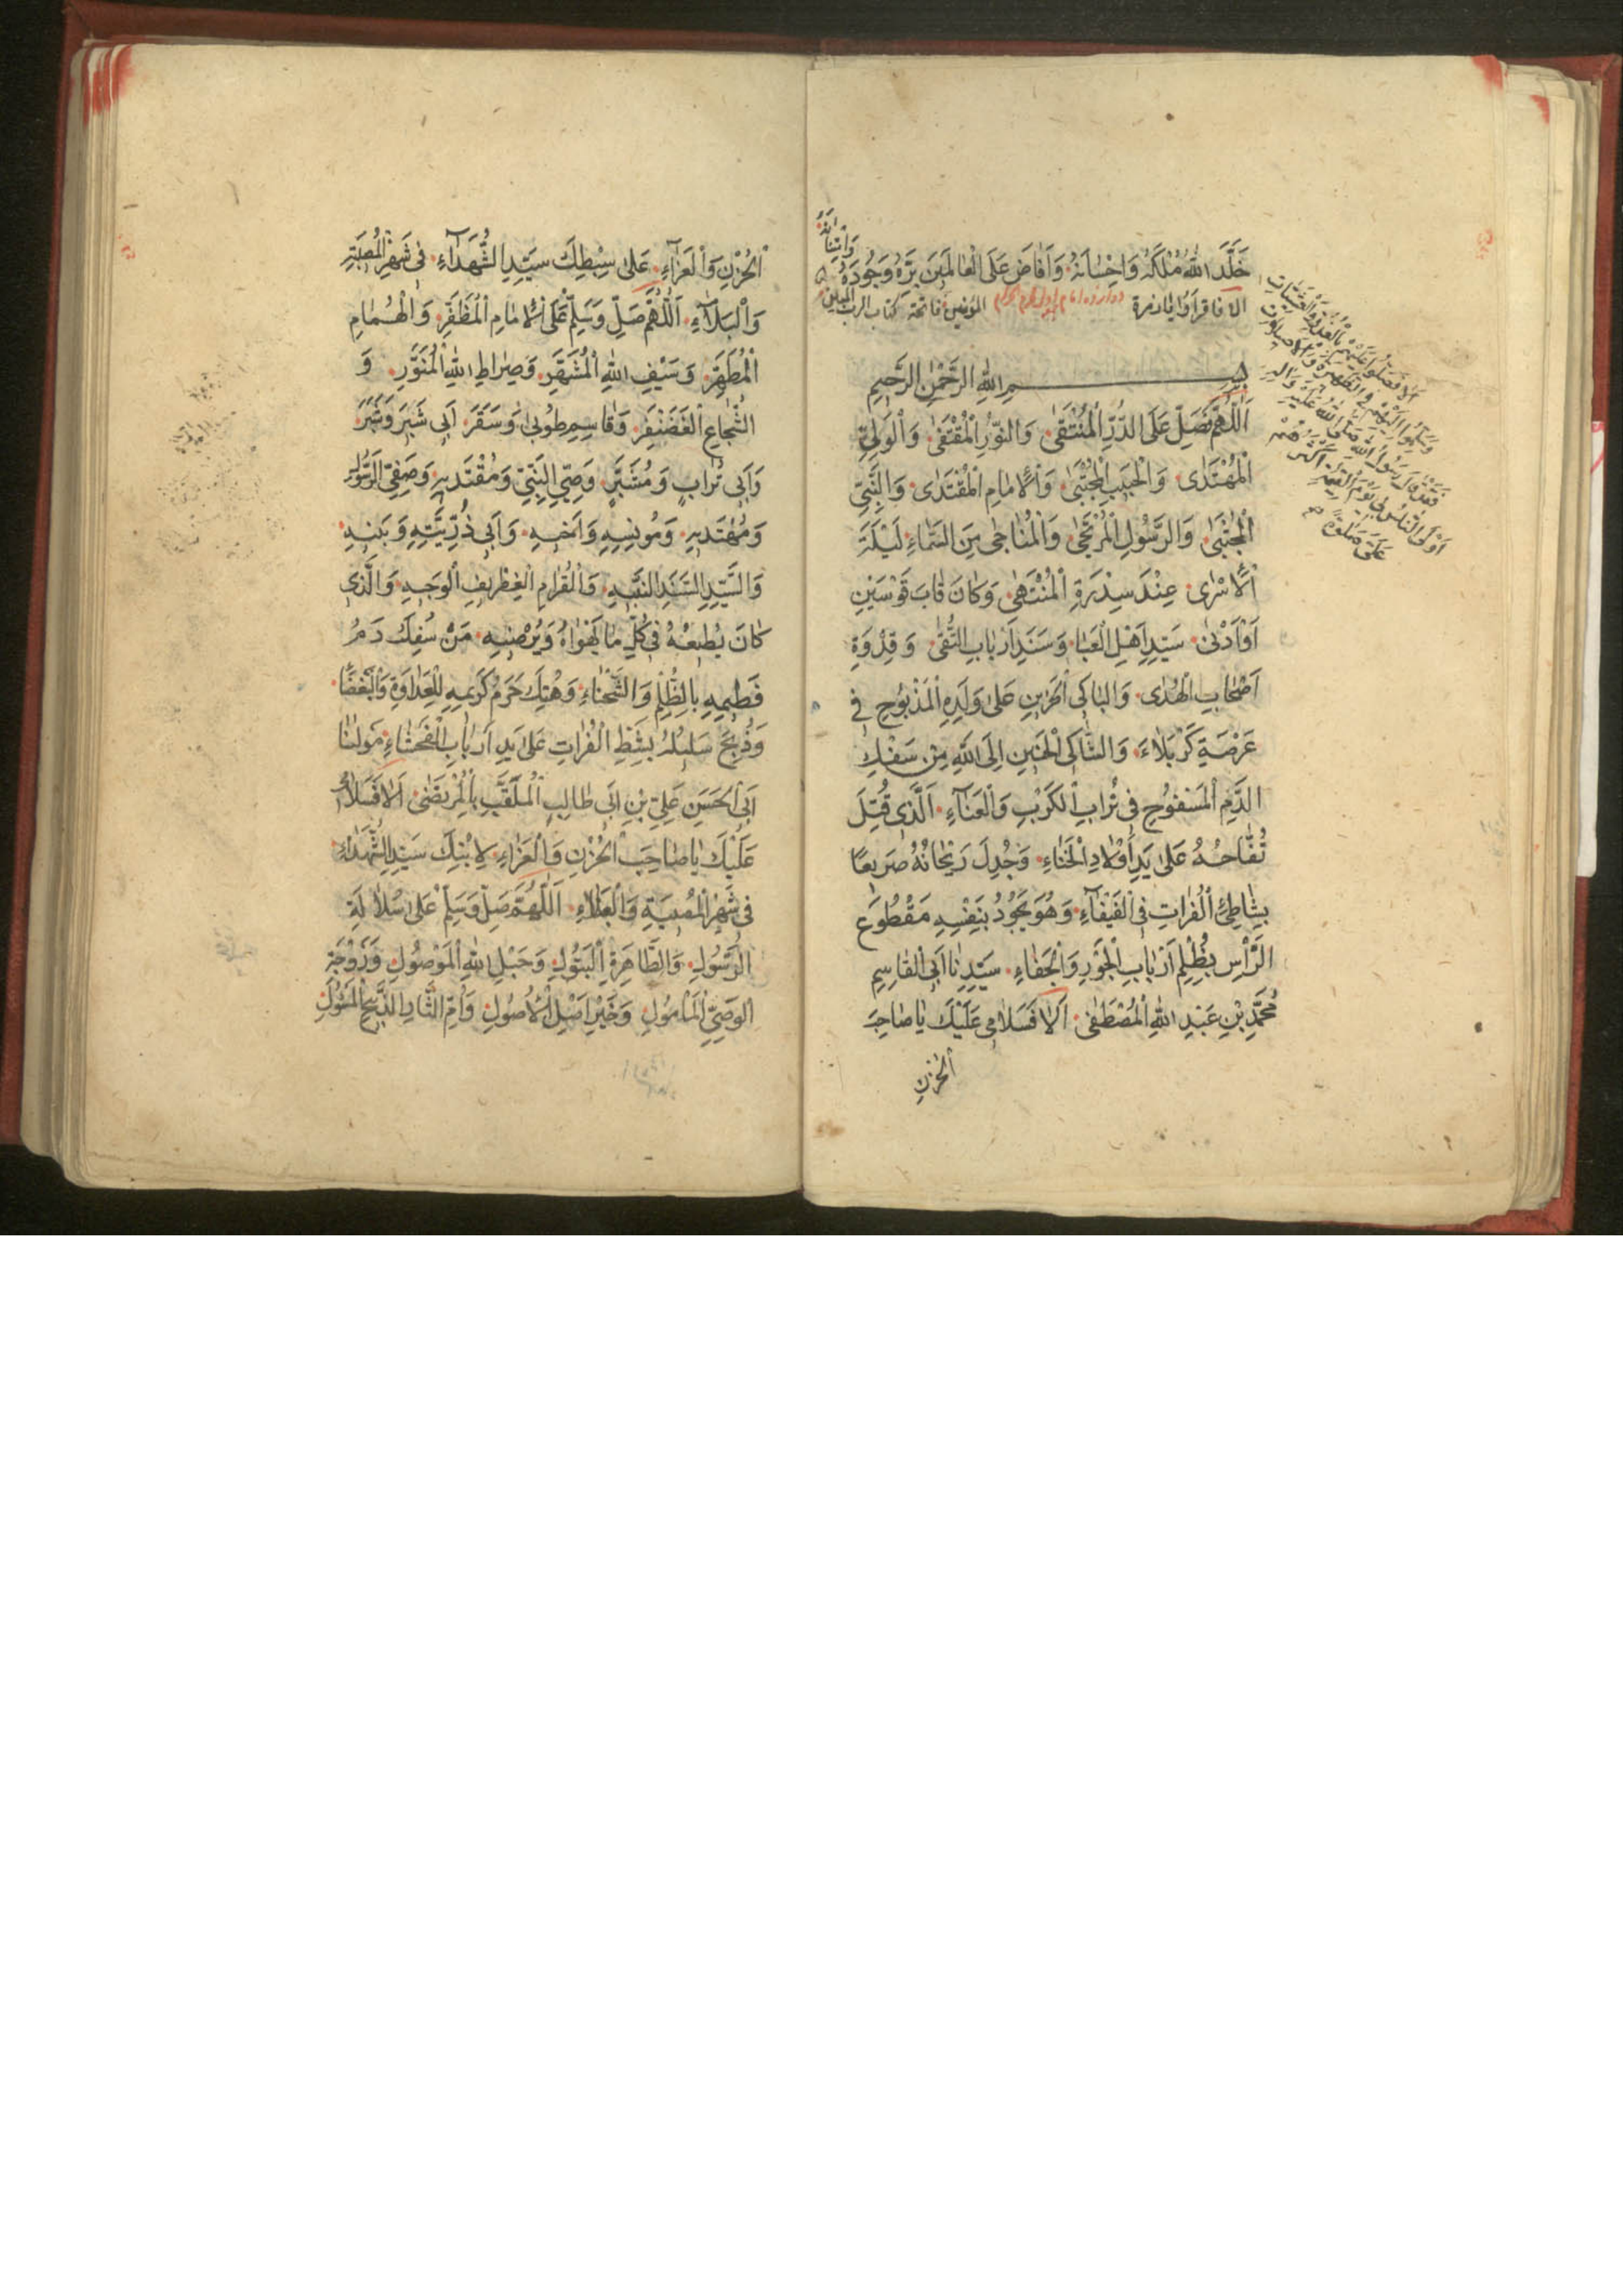 خَلَّدَ اللّٰهُ مُلْكَهُ وَاِحْسَانَهُ وَاَفَاضَ عَلَى الْعَالَمِينَ بِرَّهُ وَجُودَهُ
وَاِيَّانَا
الا فاقرأوا يا زمرة المؤمنين فاتحة كتاب الرب المعين
بِسْمِ اللّٰهِ الرَّحْمٰنِ الرَّحِيمِ
اَللّٰهُمَّ صَلِّ عَلَى الدُّرِّ الْمُنْتَقٰى وَالنُّورِ الْمُقْتَفٰى وَالْوَلِيِّ
الْمُهْتَدٰى وَالْحَبِيبِ الْمُجْتَبٰى وَالْاِمَامِ الْمُقْتَدٰى وَالنَّبِيِّ
الْمُجْتَبٰى وَالرَّسُولِ الْمُرْتَجٰى وَالْمُنَاجٰى مِنَ السَّمَاءِ لَيْلَةَ
الْاَسْرٰى عِنْدَ سِدْرَةِ الْمُنْتَهٰى وَكَانَ قَابَ قَوْسَيْنِ
اَوْ اَدْنٰى سَيِّدِ اَهْلِ الْعَبَا وَسَنَدِ اَرْبَابِ التُّقٰى وَقِدْوَةِ
اَصْحَابِ الْهُدٰى وَالْبَاكِي الْحَزِينِ عَلٰى وَلَدِهِ الْمَذْبُوحِ فِي
عَرْصَةِ كَرْبَلَاءَ وَالشَّاكِي الْحَنِينِ اِلَى اللّٰهِ مِنْ سَفْكِ
الدَّمِ الْمَسْفُوحِ فِي تُرَابِ الْكَرْبِ وَالْعَنَاءِ الَّذِي قُتِلَ
تُفَّاحُهُ عَلٰى يَدِ اَوْلَادِ الْخَنَاءِ وَجُدِلَ رَيْحَانُهُ صَرِيعًا
بِشَاطِئِ الْفُرَاتِ فِي الْفَيْفَاءِ وَهُوَ يَجُودُ بِنَفْسِهِ مَقْطُوعَ
الرَّاْسِ بِظُلْمِ اَرْبَابِ الْجَوْرِ وَالْجَفَاءِ سَيِّدِنَا اَبِي الْقَاسِمِ
مُحَمَّدِ بْنِ عَبْدِ اللّٰهِ الْمُصْطَفٰى اَلَا فَسَلَامِي عَلَيْكَ يَا صَاحِبَ
الْحُزْنِ
اَلَا فَصَلُّوا عَلَيْهِمْ بِالْغُدُوِّ وَالْعَشِيَّاتِ
فَقَدْ قَالَ رَسُولُ اللّٰهِ صَلَّى اللّٰهُ عَلَيْهِ وَاٰلِهِ
اَوْلَى النَّاسِ بِي يَوْمَ الْقِيٰمَةِ اَكْثَرُهُمْ
عَلَيَّ صَلٰوةً
الْحُزْنِ وَالْعَزَاءِ عَلٰى سِبْطِكَ سَيِّدِ الشُّهَدَاءِ فِي شَهْرِ الْمُصِيبَةِ
وَالْبَلَاءِ اَللّٰهُمَّ صَلِّ وَسَلِّمْ عَلَى الْاِمَامِ الْمُظَفَّرِ وَالْهُمَامِ
الْمُطَهَّرِ وَسَيْفِ اللّٰهِ الْمُشَهَّرِ وَصِرَاطِ اللّٰهِ الْمُنَوَّرِ وَ
الشُّجَاعِ الْغَضَنْفَرِ وَقَاسِمِ طُوبٰى وَسَقَرَ اَبِي شَبَرَ وَشُبَّرَ
وَاَبِي تُرَابٍ وَمُشَبَّرٍ وَصِيِّ النَّبِيِّ وَمُقْتَدِيهِ وَصَفِيِّ الرَّسُولِ
وَمُهْتَدِيهِ وَمُونِسِهِ وَاَخِيهِ وَاَبِي ذُرِّيَّتِهِ وَبَنِيهِ
وَالسَّيِّدِ السَّنَدِ النَّبِيهِ وَالْقَرَامِ الْغِطْرِيفِ الْوَجِيهِ وَالَّذِي
كَانَ يُطِيعُهُ فِي كُلِّ مَا يَهْوَاهُ وَيُرْضِيهِ مَنْ سُفِكَ دَمُ
فَطِيمِهِ بِالظُّلْمِ وَالشَّحْنَاءِ وَهُتِكَ حَرَمُ كَرِيمِهِ لِلْعَدَاوَةِ وَالْبَغْضَاءِ
وَذُبِحَ سَلِيلُهُ بِشَطِّ الْفُرَاتِ عَلٰى يَدِ اَرْبَابِ الْفَحْشَاءِ مَوْلٰنَا
اَبِي الْحَسَنِ عَلِيِّ بْنِ اَبِي طَالِبٍ الْمُلَقَّبِ بِالْمُرْتَضٰى اَلَا فَسَلَامِي
عَلَيْكَ يَا صَاحِبَ الْحُزْنِ وَالْعَزَاءِ لِابْنِكَ سَيِّدِ الشُّهَدَاءِ
فِي شَهْرِ الْمُصِيبَةِ وَالْبَلَاءِ اَللّٰهُمَّ صَلِّ وَسَلِّمْ عَلٰى سُلَالَةِ
الرَّسُولِ وَالطَّاهِرَةِ الْبَتُولِ وَحَبْلِ اللّٰهِ الْمَوْصُولِ وَزَوْجَةِ
الْوَصِيِّ الْمَاْمُولِ وَخَيْرِ اَصْلِ الْاُصُولِ وَاُمِّ